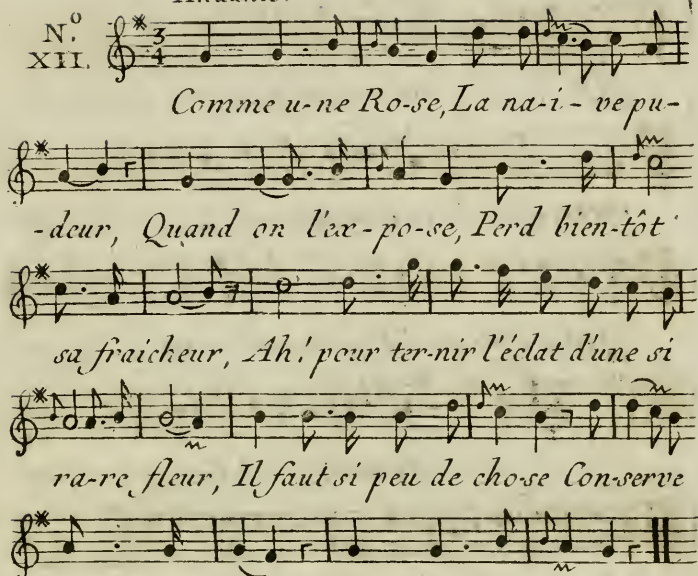 Andante.
N.º
XII.
3
4
Comme u-ne Ro-se, La na-i-ve pu-
-deur, Quand on l'ex-po-se, Perd bien-tôt
sa fraicheur, Ah! pour ter-nir l'éclat d'une si
ra-re fleur, Il faut si peu de cho-se Con-serve